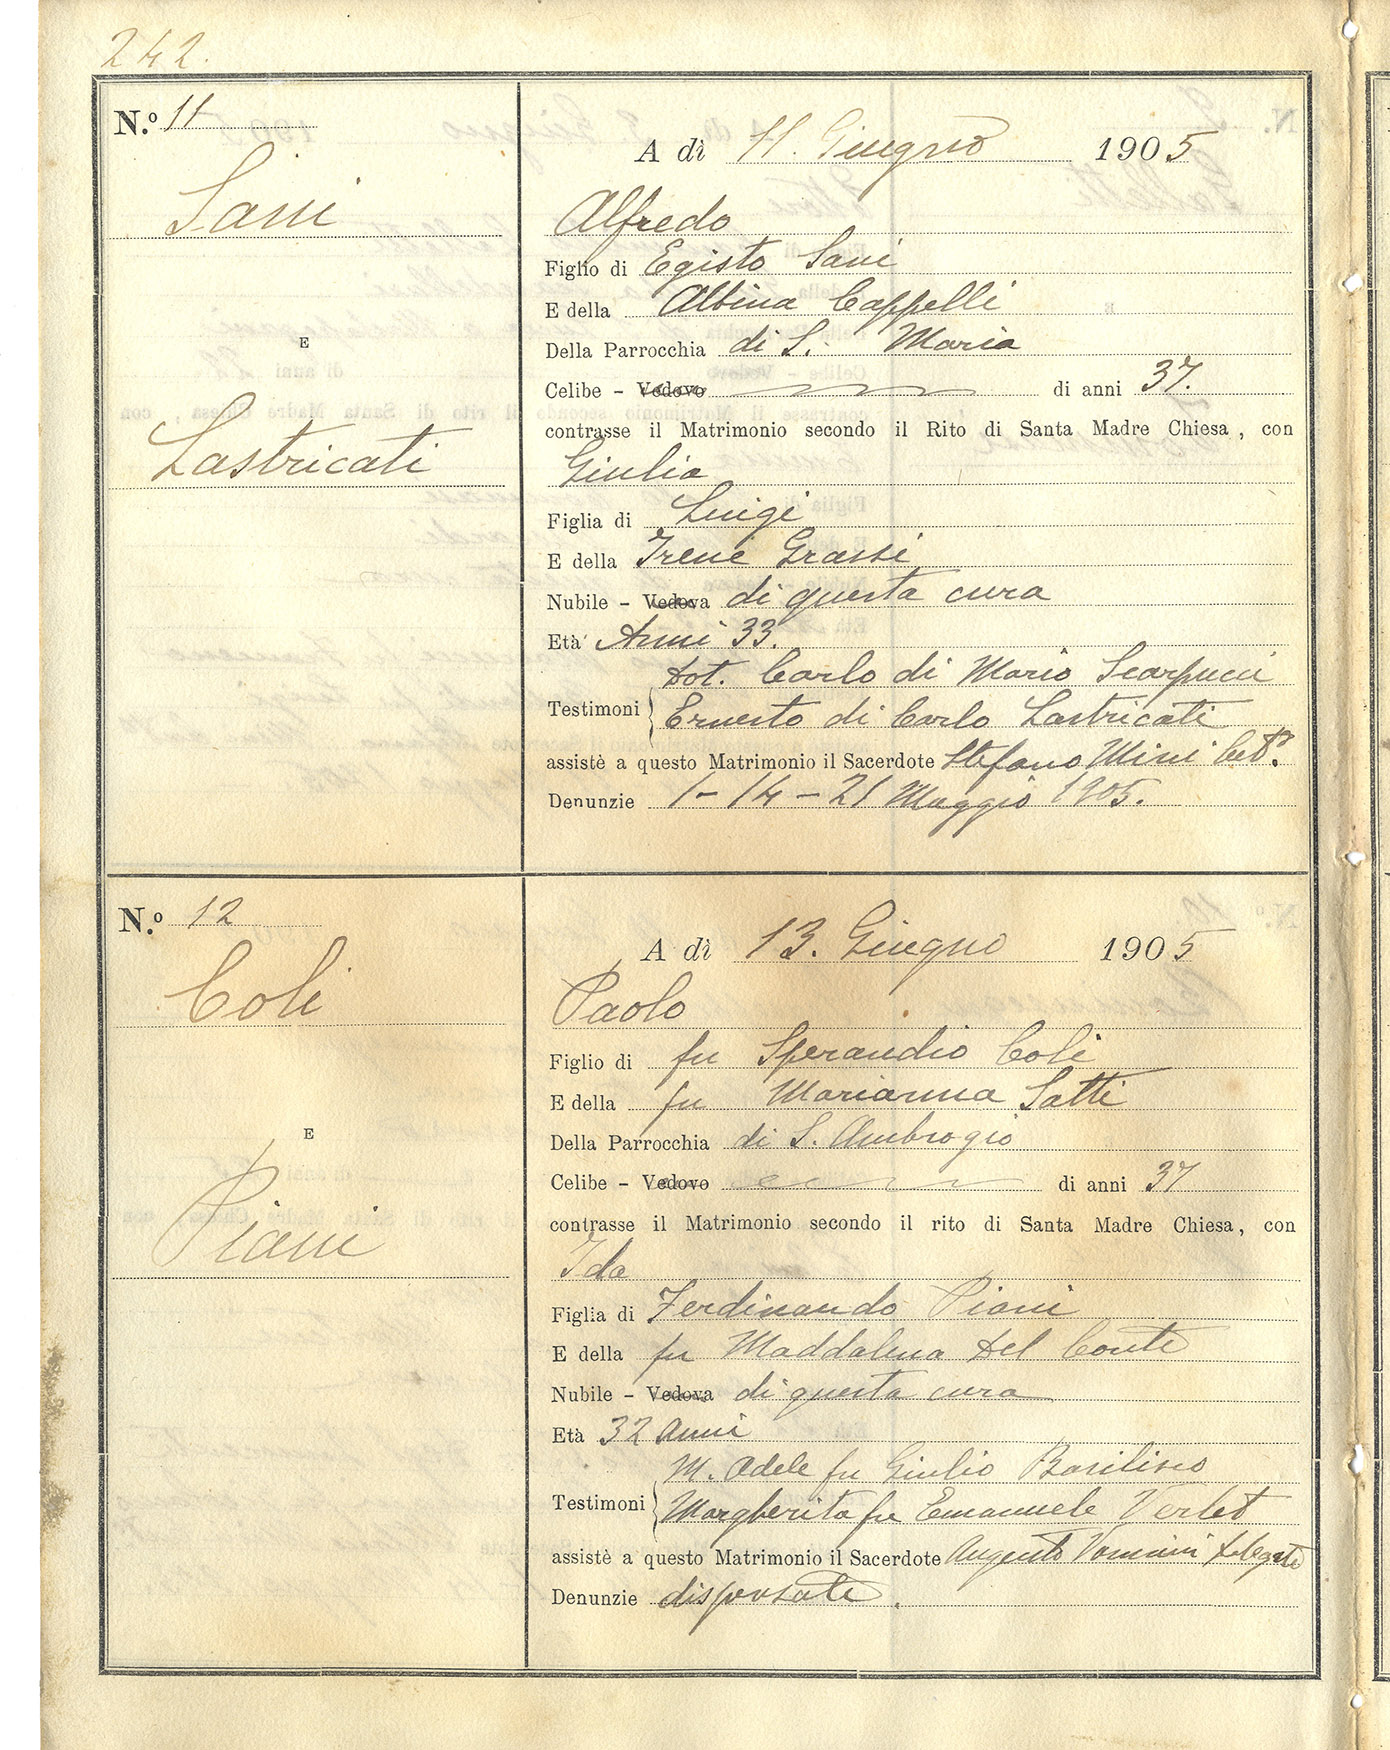 242.
N.º 11
A dì 11. Giugno 1905
Sani
Alfredo
Figlio di Egisto Sani
E della Albina Cappelli
E
Della Parrocchia di S. Maria
Celibe – Vedovo di anni 37.
contrasse il Matrimonio secondo il Rito di Santa Madre Chiesa, con
Lastricati
Giulia
Figlia di Luigi
E della Irene Grassi
Nubile – Vedova di questa cura
Età Anni 33.
Dot. Carlo di Mario Scarpucci
Testimoni Ernesto di Carlo Lastricati
assistè a questo Matrimonio il Sacerdote Stefano Mini
Denunzie 1 – 14 – 21 Maggio 1905.
N.º 12
A dì 13. Giugno 1905
Coli
Paolo
Figlio di fu Sperandio Coli
E della fu Marianna Satti
E
Della Parrocchia di S. Ambrogio
Celibe – Vedovo di anni 37
contrasse il Matrimonio secondo il rito di Santa Madre Chiesa, con
Piani
Ida
Figlia di Ferdinando Piani
E della fu Maddalena Del Conte
Nubile – Vedova di questa cura
Età 32 Anni
M. Adele fu Giulio
Testimoni Margherita fu Emanuele
assistè a questo Matrimonio il Sacerdote Augusto delegato
Denunzie dispensate.